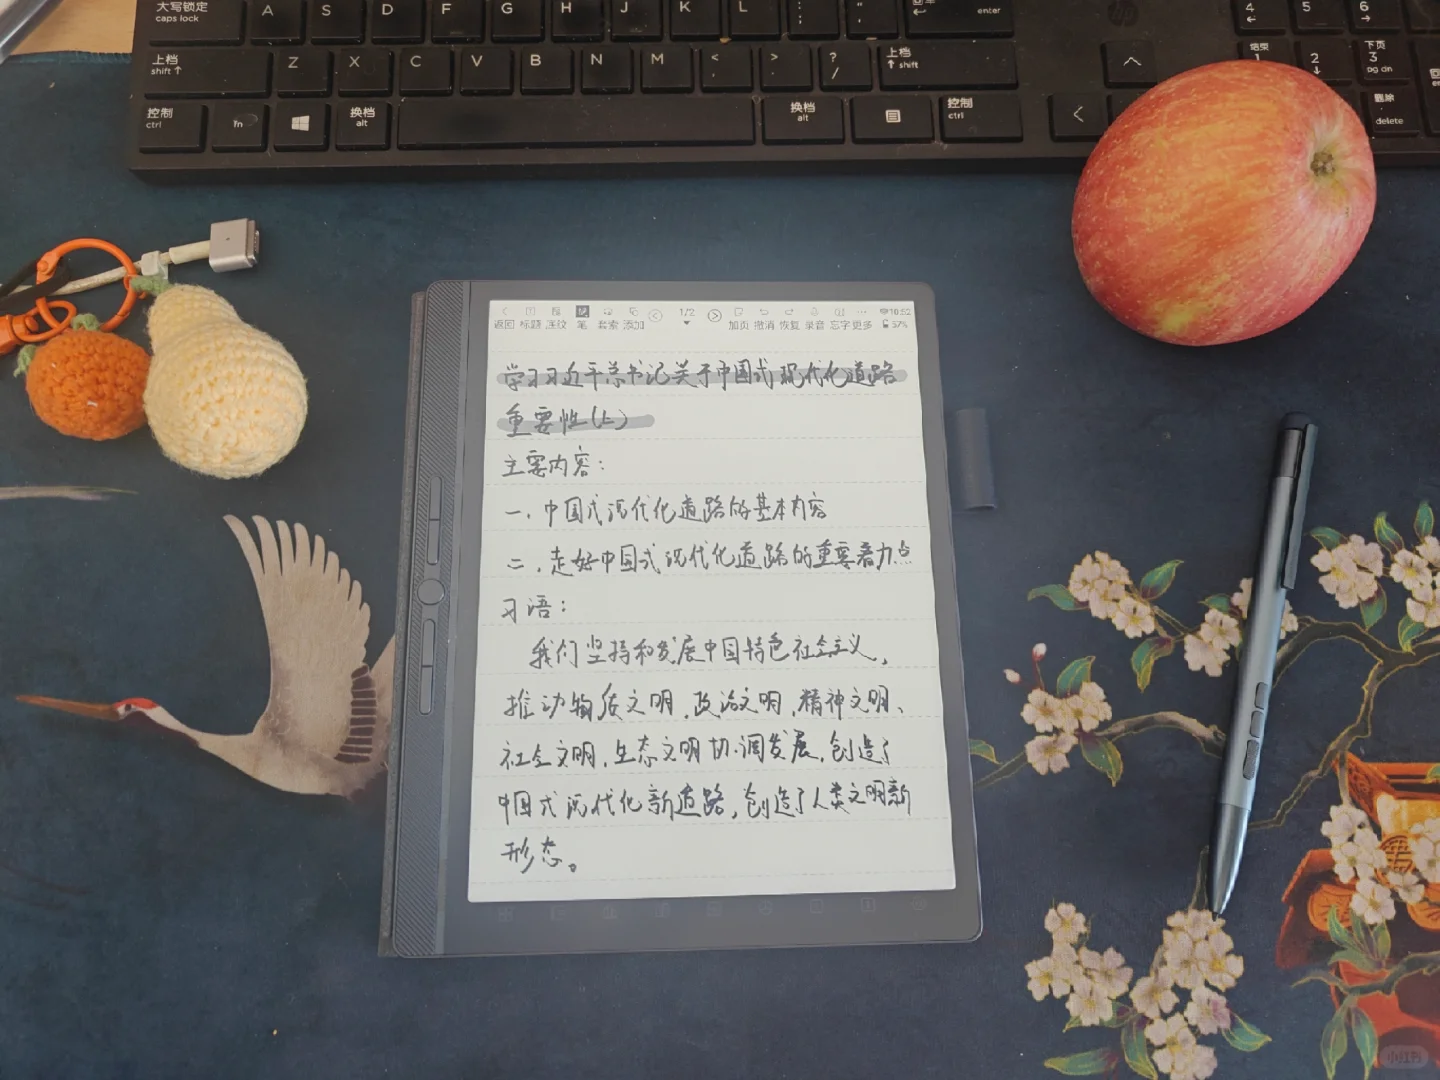 大写锁定 A S D F G H J K L ; " enter 4 5 6
caps lock
上档 Z X C V B N M < > ? 上档 结束 2 下页
shift ↑ / ↑ shift 1 3
pg dn
控制 fn 换档 换档 控制 删除
ctrl alt alt ctrl delete
hp
1/2 16:52
返回 标题 笔 套索 添加 加页 撤消 恢复 录音 忘字 更多 57%
学习习近平总书记关于中国式现代化道路
重要性(上)
主要内容:
一.中国式现代化道路的基本内容
二.走好中国式现代化道路的重要着力点
习语:
我们坚持和发展中国特色社会主义,
推动物质文明、政治文明、精神文明、
社会文明、生态文明协调发展,创造了
中国式现代化新道路,创造了人类文明新
形态。
小红书